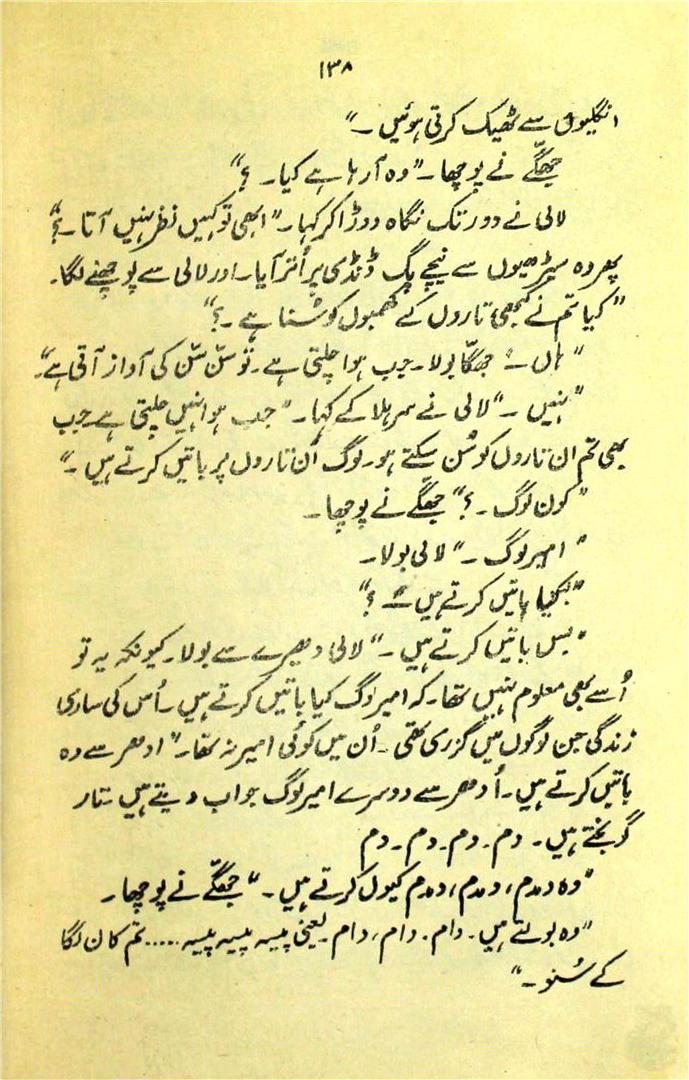 ۱۳۸
انگلیوں سے ٹھیک کرتی ہوئیں ۔"
جھگّے نے پوچھا۔ "وہ آ رہا ہے کیا۔ ؟"
لالی نے دور تک نگاہ دوڑا کر کہا۔ "ابھی تو کہیں نظر نہیں آتا۔ ؟"
پھر وہ سیڑھیوں سے نیچے پگ ڈنڈی پر اُتر آیا۔ اور لالی سے پوچھنے لگا۔
"کیا تم نے کبھی تاروں کے کھمبوں کو سُنا ہے ۔ ؟"
"ہاں ۔" جھگّا بولا۔ جب ہوا چلتی ہے ۔ تو سَن سَن کی آواز آتی ہے"۔
"نہیں ۔" لالی نے سر ہلا کے کہا۔ "جب ہوا نہیں چلتی ہے جب
بھی تم ان تاروں کو سُن سکتے ہو۔ لوگ اُن تاروں پر باتیں کرتے ہیں ۔"
"کون لوگ ۔ ؟" جھگّے نے پوچھا۔
"امیر لوگ ۔" لالی بولا۔
"کیا باتیں کرتے ہیں ۔ ؟"
"بس باتیں کرتے ہیں ۔" لالی دھیرے سے بولا۔ کیونکہ یہ تو
اُسے بھی معلوم نہیں تھا۔ کہ امیر لوگ کیا باتیں کرتے ہیں ۔ اُس کی ساری
زندگی جن لوگوں میں گزری تھی ۔ اُن میں کوئی امیر نہ تھا۔ "ادھر سے وہ
باتیں کرتے ہیں ۔ اُدھر سے دوسرے امیر لوگ جواب دیتے ہیں ۔ تار
گونجتے ہیں ۔ دم ۔ دم ۔ دم ۔ دم
"وہ دمدم، دمدم، دمدم کیوں کرتے ہیں ۔" جھگّے نے پوچھا۔
"وہ بولتے ہیں ۔ دام ۔ دام، دام ۔ یعنی پیسہ پیسہ پیسہ ..... تم کان لگا
کے سُنو ۔"